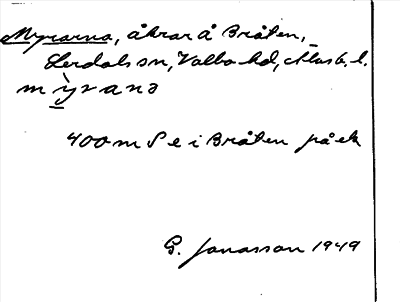 Myrarna, åkrar å Bråten,
Lerdals sn, Valbo hd, Älvsb. l.
mỳrana
400 m S e i Bråten på ek
G. Jonasson 1949